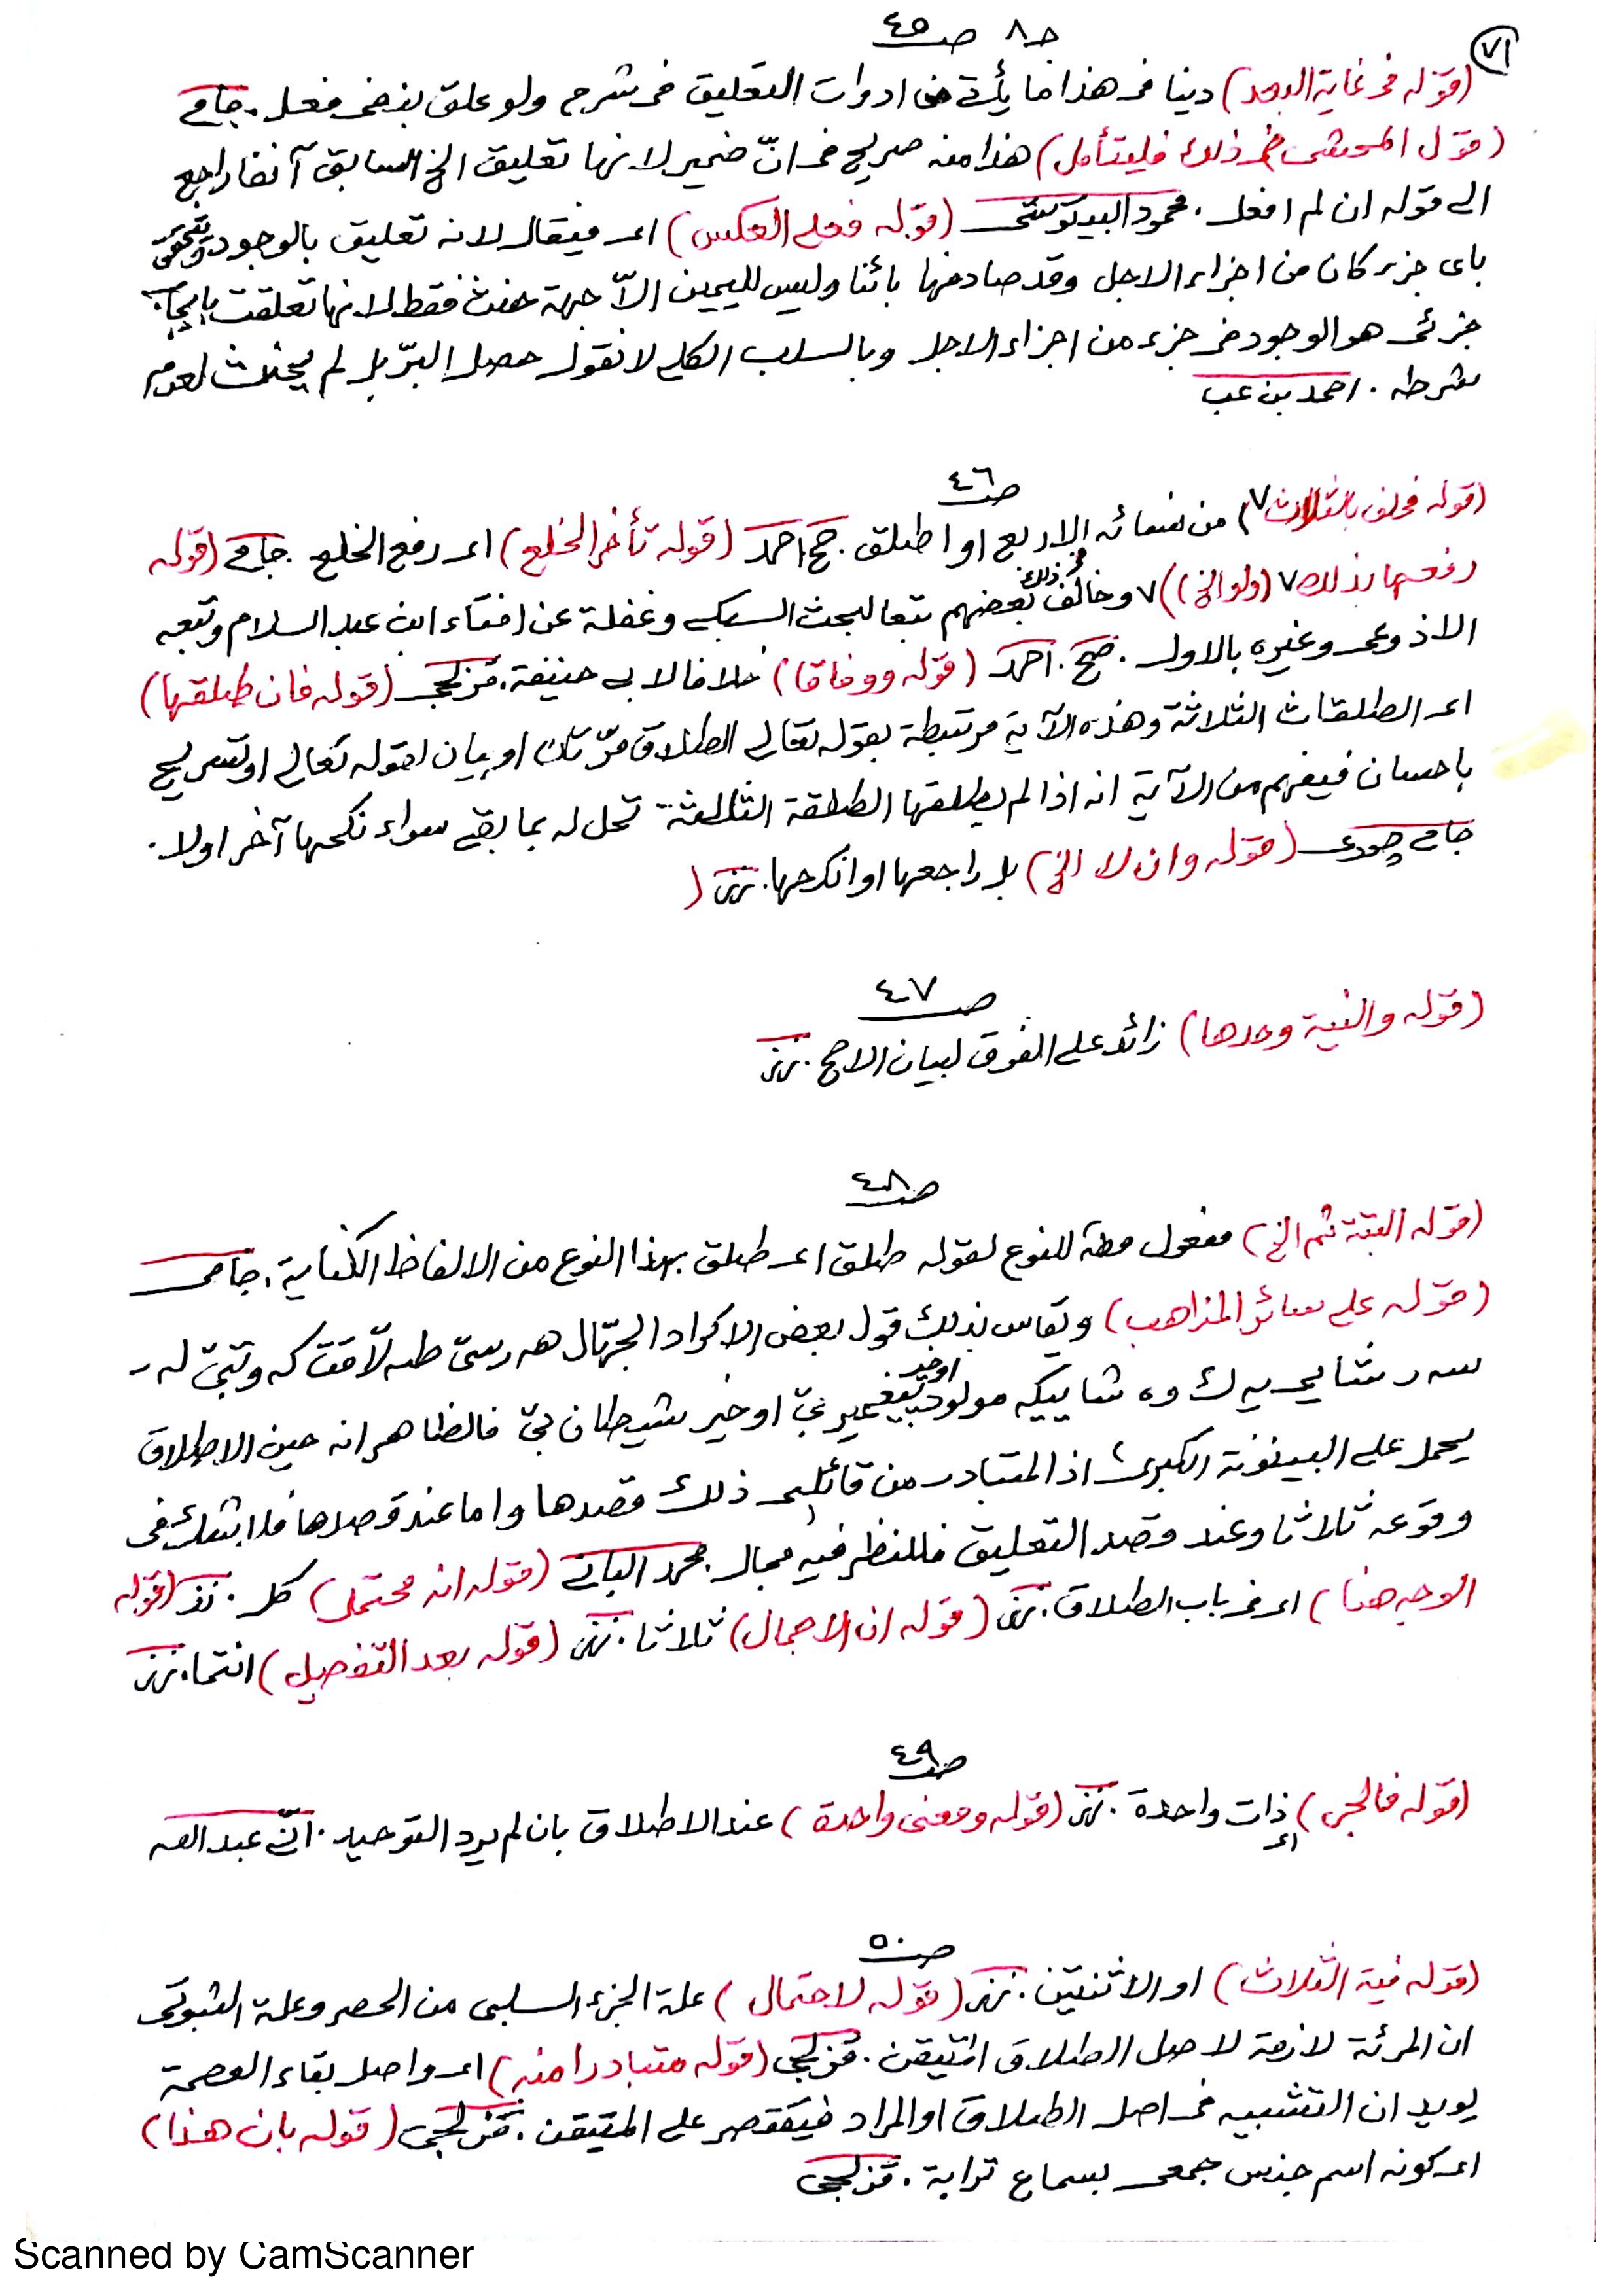 ٧١
جـ ٨ صـ ٤٥
(قوله في غاية البعد) دينا في هذا ما يأتي في ادوات التعليق في شرح ولو علق بنفي فعل . جامي
(قول المحشى في ذلك فليتأمل) هذا منه صريح في انّ ضمير لانها تعليق الخ السابق آنفا راجع
الى قوله ان لم افعل . محمود (قوله فعلى العكس) اى فيقال لانه تعليق بالوجود وتحقق
باى جزء كان من اجزاء الاجل وقد صادفها بائنا وليس لليمين الاّ جهة حنث فقط لانها تعلقت بايجاب
جزئى هو الوجود في جزء من اجزاء الاجل وبالسلب الكلى لا نقول حصل البرّ بل لم يحنث لعدم
شرطه . احمد بن عب
صـ ٤٦
(قوله فحلف بالثلاث ٧) من نسائه الاربع او اطلق . حج احمد (قوله تأخر الخلع) اى رفع الخلع . جامي (قوله
رفعها بذلك ٧ (ولو الخ)) ٧ وخالف في ذلك بعضهم تبعا لبحث السبكي وغفلة عن افتاء ابن عبد السلام وتبعه
الاذرعى وغيره بالاول . حج . احمد (قوله ووفاقا) خلافا لابى حنيفة . قزلجى (قوله فان طلقها)
اى الطلقات الثلاثة وهذه الآية مرتبطة بقوله تعالى الطلاق مرّتان او بيان لقوله تعالى او تسريح
باحسان فيفهم من الآية انه اذا لم يطلقها الطلقة الثالثة تحل له بما بقى سواء نكحها آخر اولا .
جامي چورى (قوله وان لا الخ) بل راجعها او انكحها . نز (
صـ ٤٧
(قوله والنية وحدها) زائد على الفرق لبيان الاصح . نز
صـ ٤٨
(قوله البتة ثم الخ) مفعول مطـ للنوع لقوله طلق اى طلق بهذا النوع من الالفاظ الكناية . جامى
(قوله على سائر المذاهب) ويقاس بذلك قول بعض الاكراد الجهّال هه رسىّ طه لاّقت كه وتبىّ له ر
سه ر شايى يه ك وه شاييكه مولود پيغمبر بىّ اوخير شيطان بىّ فالظاهر انه حين الاطلاق
يحمل على البينونة الكبرى اذ المتبادر من قائلى ذلك قصدها واما عند قصدها فلا شك في
وقوعه ثلاثا وعند قصد التعليق فللنظر فيه مجال . محمد الباني (قوله انه محتمل) كل . نز (قوله
الوجه هنا) اى في باب الطلاق . نز (قوله ان الاجمال) ثلاثا . نز (قوله بعد التفصيل) انتما . نز
صـ ٤٩
(قوله فالجر) اى ذات واحدة . نز (قوله ومعنى واحدة) عند الاطلاق بان لم يرد التوحيد . عبد الله
صـ ٥٠
(قوله نية الثلاث) او الاثنتين . نز (قوله لاحتمال) علة الجزء السلبى من الحصر وعلة الثبوتى
ان المرئة لازمة لاصل الطلاق المتيقن . قزلجى (قوله متبادرا منه) اى واصل بقاء العصمة
يويد ان التشبيه في اصل الطلاق او المراد فيقتصر على المتيقن . قزلجى (قوله بان هذا)
اى كونه اسم جنس جمعى بسماع ترابة . قزلجى
Scanned by CamScanner